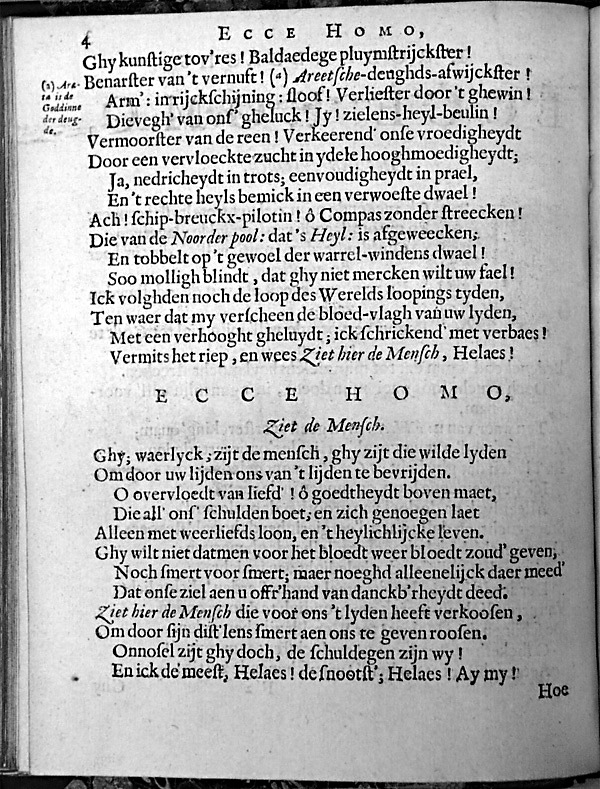 4
ECCE HOMO,
Ghy kunstige tov'res! Baldaedege pluymstrijckster!
Benarster van 't vernuft! (a) Areetsche-deughds-afwijckster!
Arm': in rijckschijning: sloof! Verliester door 't ghewin!
Dievegh' van ons' gheluck! Jy! zielens-heyl-beulin!
Vermoorster van de reen! Verkeerend' onse vroedigheydt
Door een vervloeckte zucht in ydele hooghmoedigheydt;
Ja, nedricheydt in trots; eenvoudigheydt in prael,
En 't rechte heyls bemick in een verwoeste dwael!
Ach! schip-breuckx-pilotin! ô Compas zonder streecken!
Die van de Noorder pool: dat 's Heyl: is afgeweecken;
En tobbelt op 't gewoel der warrel-windens dwael!
Soo molligh blindt, dat ghy niet mercken wilt uw fael!
Ick volghden noch de loop des Werelds loopings tyden,
Ten waer dat my verscheen de bloed-vlagh van uw lyden,
Met een verhooght gheluydt; ick schrickend' met verbaes!
Vermits het riep, en wees Ziet hier de Mensch, Helaes!
(a) Are-
ta is de
Goddinne
der deug-
de.
ECCE HOMO,
Ziet de Mensch.
Ghy; waerlyck; zijt de mensch, ghy zijt die wilde lyden
Om door uw lijden ons van 't lijden te bevrijden.
O overvloedt van liefd'! ô goedtheydt boven maet,
Die all' ons' schulden boet; en zich genoegen laet
Alleen met weerliefds loon, en 't heylichlijcke leven.
Ghy wilt niet datmen voor het bloedt weer bloedt zoud' geven,
Noch smert voor smert; maer noeghd alleenelijck daer meed'
Dat onse ziel aen u offr'hand van danckb'rheydt deed.
Ziet hier de Mensch die voor ons 't lyden heeft verkoosen,
Om door sijn dist'lens smert aen ons te geven roosen.
Onnosel zijt ghy doch, de schuldegen zijn wy!
En ick de meest, Helaes! de snootst'; Helaes! Ay my!
Hoe